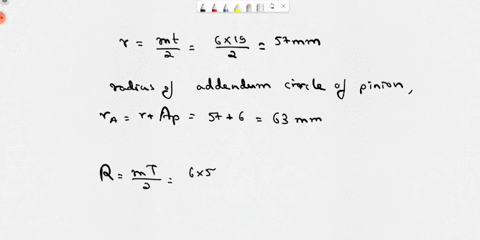 r = mt/2 = 6×19/2 = 57mm
radius of addendum circle of pinion,
rA = r+Ap = 57+6 = 63 mm
R = mT/2 = 6×5